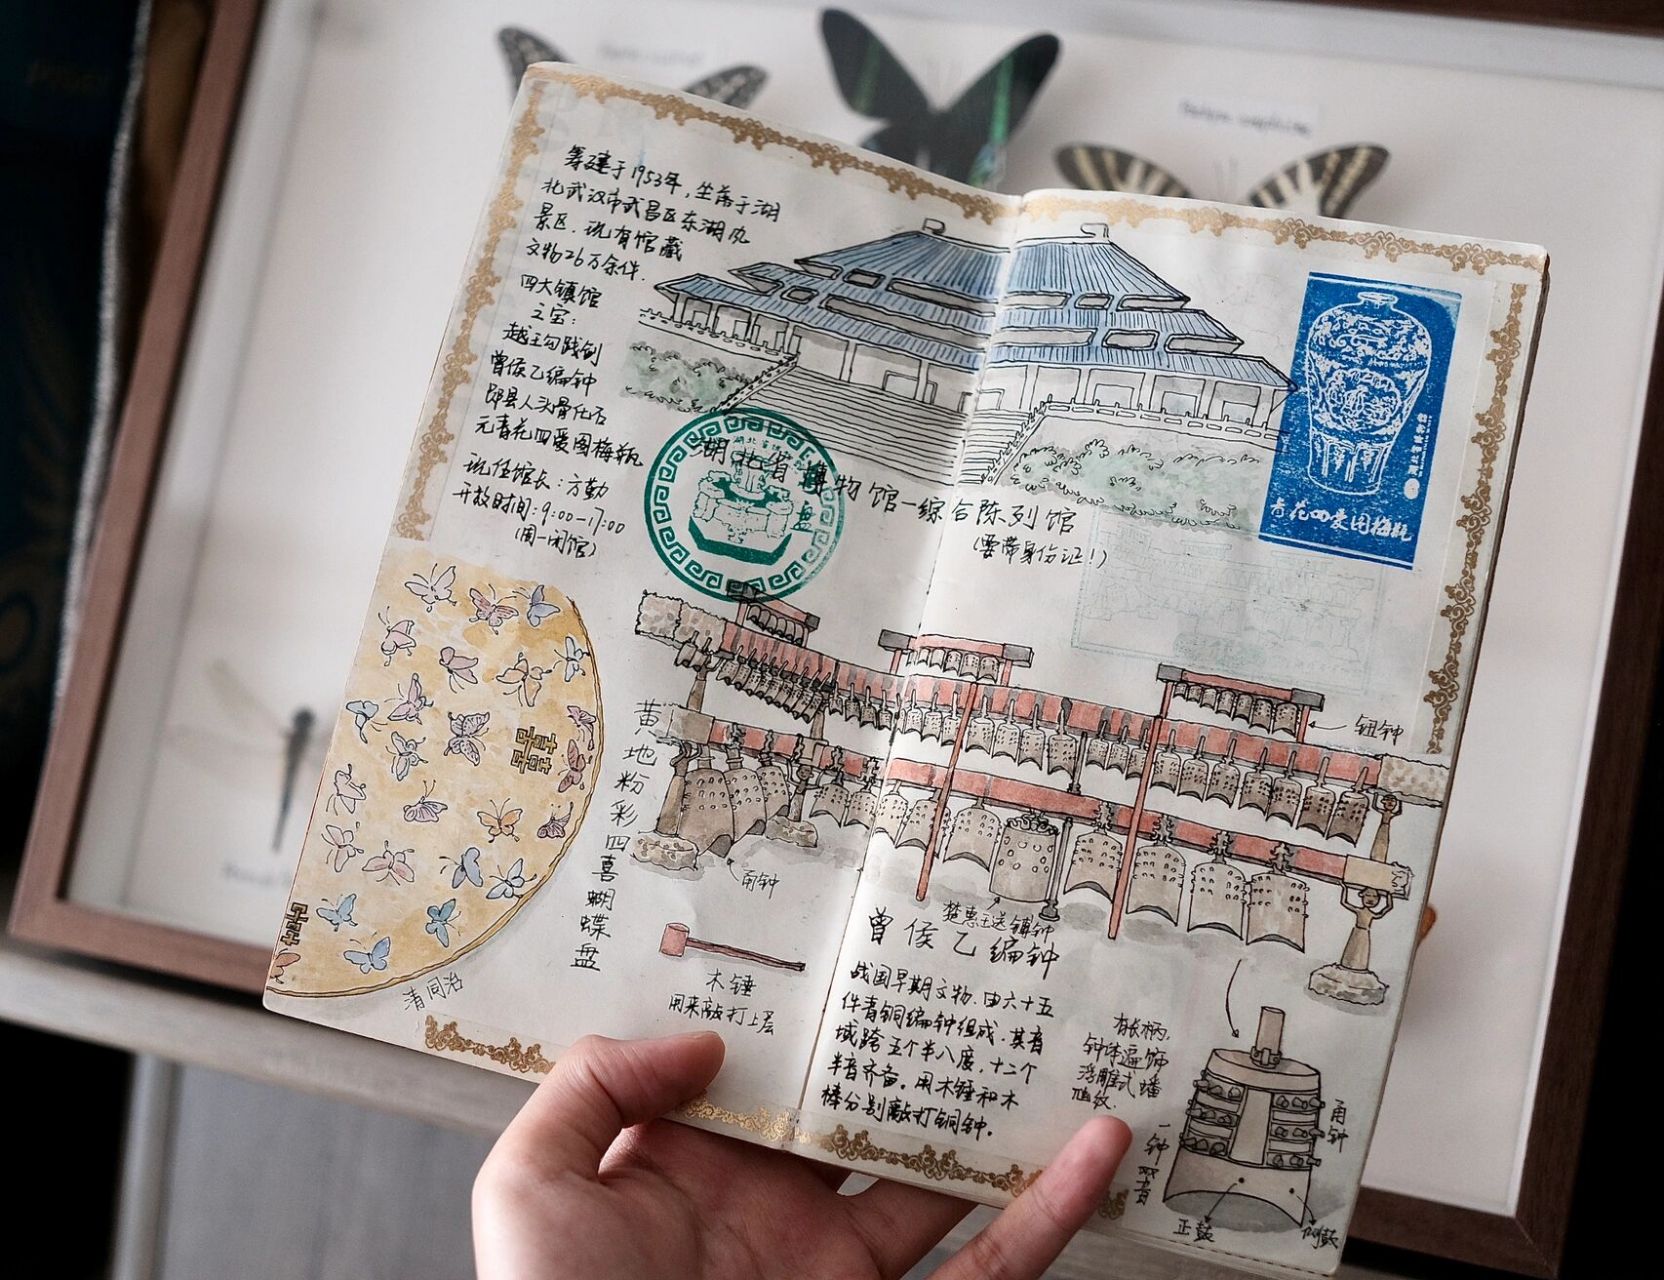 筹建于1953年，坐落于湖
北武汉市武昌区东湖风
景区．现有馆藏
文物26万余件．
四大镇馆
之宝：
越王勾践剑
曾侯乙编钟
郧县人头骨化石
元青花四爱图梅瓶
现任馆长：方勤
开放时间：9:00-17:00
(周一闭馆)
湖北省博物馆-综合陈列馆
(要带身份证！)
青花四爱图梅瓶
黄地粉彩四喜蝴蝶盘
喜喜
清同治
钮钟
甬钟
楚惠王送镈钟
木锤
用来敲打上层
曾侯乙编钟
战国早期文物．由六十五
件青铜编钟组成．其音
域跨五个半八度，十二个
半音齐备．用木锤和木
棒分别敲打铜钟。
有长柄，
钟体遍饰
浮雕式蟠
虺纹．
一钟双音
甬钟
正鼓